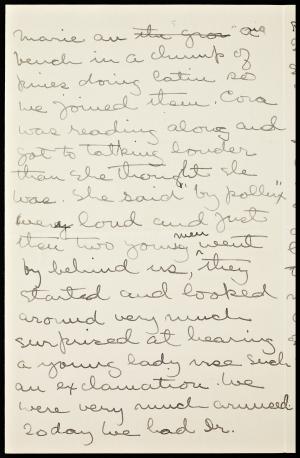 Marie an ~~the gros~~ on a
bench in a clump of
pines doing Latin so
we joined them. Cora
was reading along and
got to talking louder
than she thought she
was. She said "by pollux"
very loud and just
then two young men went
by behind us, they
started and looked
around very much
surprized at hearing
a young lady use such
an exclamation. We
were very much amused.
Today we had Dr.